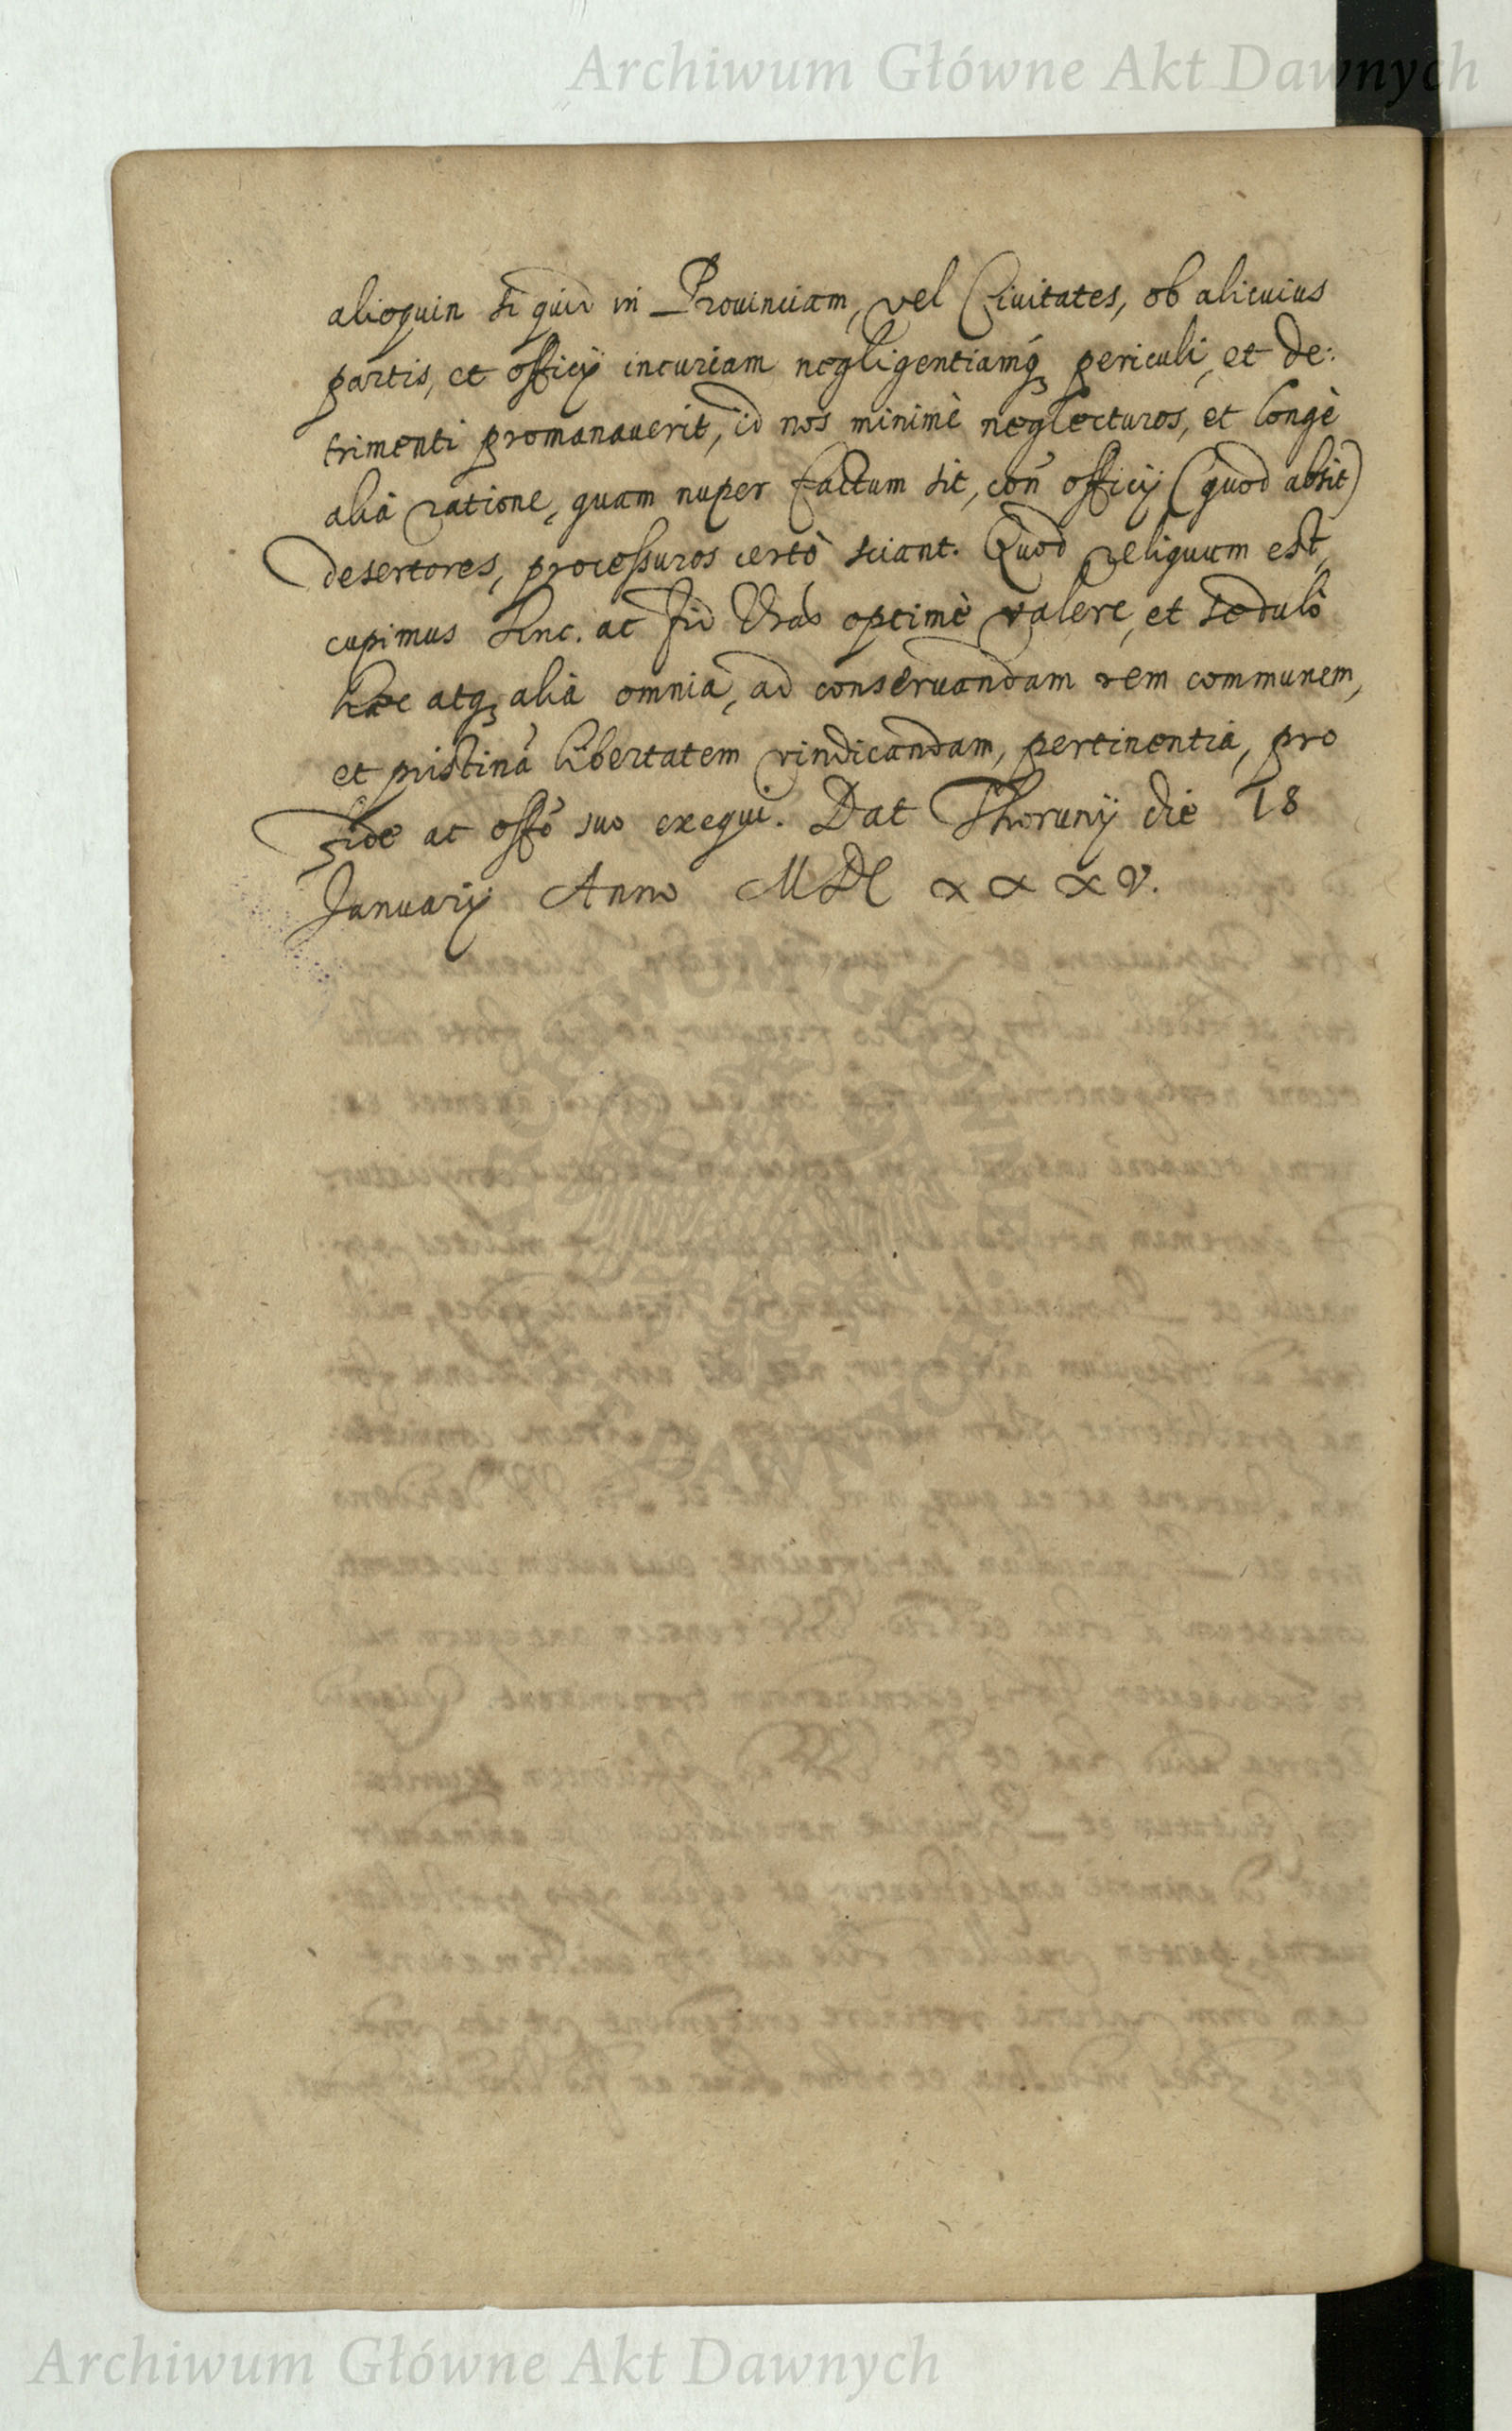 Archiwum Główne Akt Dawnych
alioquin si quid in Prouinciam, vel Ciuitates, ob alicuius
partis, et officij incuriam negligentiamq́ꝫ periculi, et de:
trimenti promanauerit, id nos minimè neglecturos, et longè
alià ratione, quam nuper factum sit, con̄ officij (quod absit)
desertores, processuros certò sciant. Quod reliquum est,
cupimus Sinc. ac Fid Vras optimè valere, et sedulò
haec atqꝫ alia omnia, ad conseruandam rem communem,
et pristinā libertatem vindicandam, pertinentia, pro
fide ac offō suo exequi. Dat Thorunij die 18
Januarij Anno MDC XXXV.
ARCHIWUM GŁÓWNE AKT DAWNYCH
Archiwum Główne Akt Dawnych